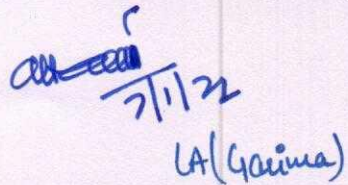 7/11/22
LA(Garima)